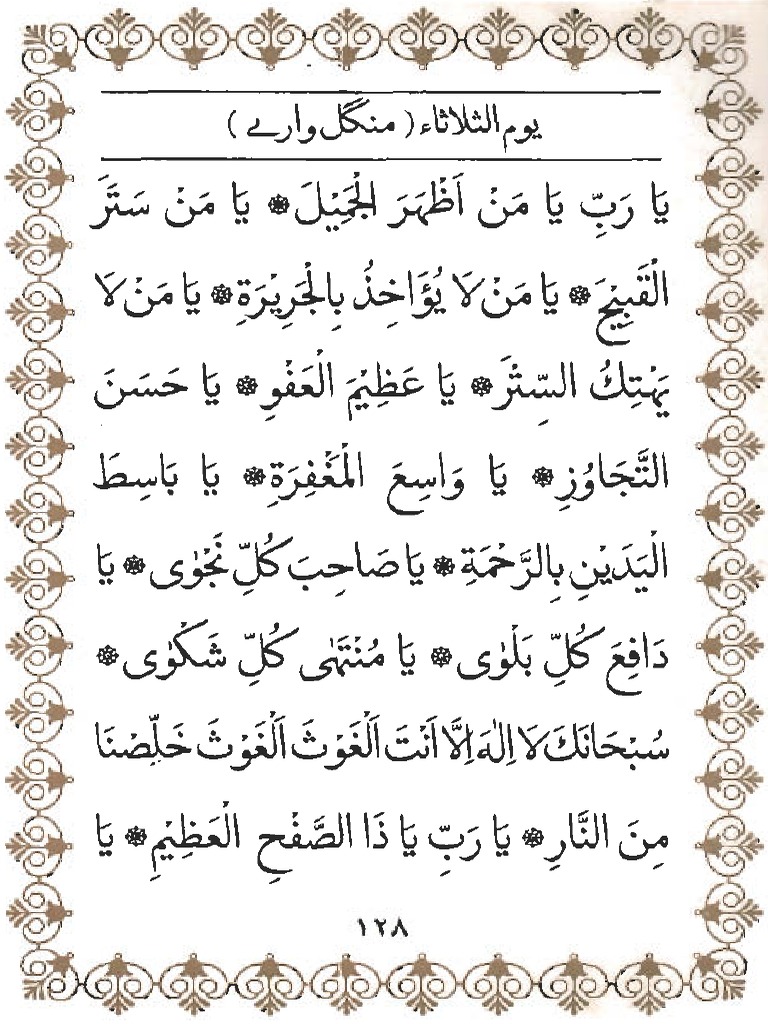 يوم الثلاثاء ( منگل وارے )
يَا رَبِّ يَا مَنْ اَظْهَرَ الْجَمِيْلَ ۞ يَا مَنْ سَتَرَ
الْقَبِيْحَ ۞ يَا مَنْ لَا يُؤَاخِذُ بِالْجَرِيْرَةِ ۞ يَا مَنْ لَا
يَهْتِكُ السِّتْرَ ۞ يَا عَظِيْمَ الْعَفْوِ ۞ يَا حَسَنَ
التَّجَاوُزِ ۞ يَا وَاسِعَ الْمَغْفِرَةِ ۞ يَا بَاسِطَ
الْيَدَيْنِ بِالرَّحْمَةِ ۞ يَا صَاحِبَ كُلِّ نَجْوٰى ۞ يَا
دَافِعَ كُلِّ بَلْوٰى ۞ يَا مُنْتَهٰى كُلِّ شَكْوٰى ۞
سُبْحَانَكَ لَا اِلٰهَ اِلَّا اَنْتَ اَلْغَوْثَ اَلْغَوْثَ خَلِّصْنَا
مِنَ النَّارِ ۞ يَا رَبِّ يَا ذَا الصَّفْحِ الْعَظِيْمِ ۞ يَا
١٢٨